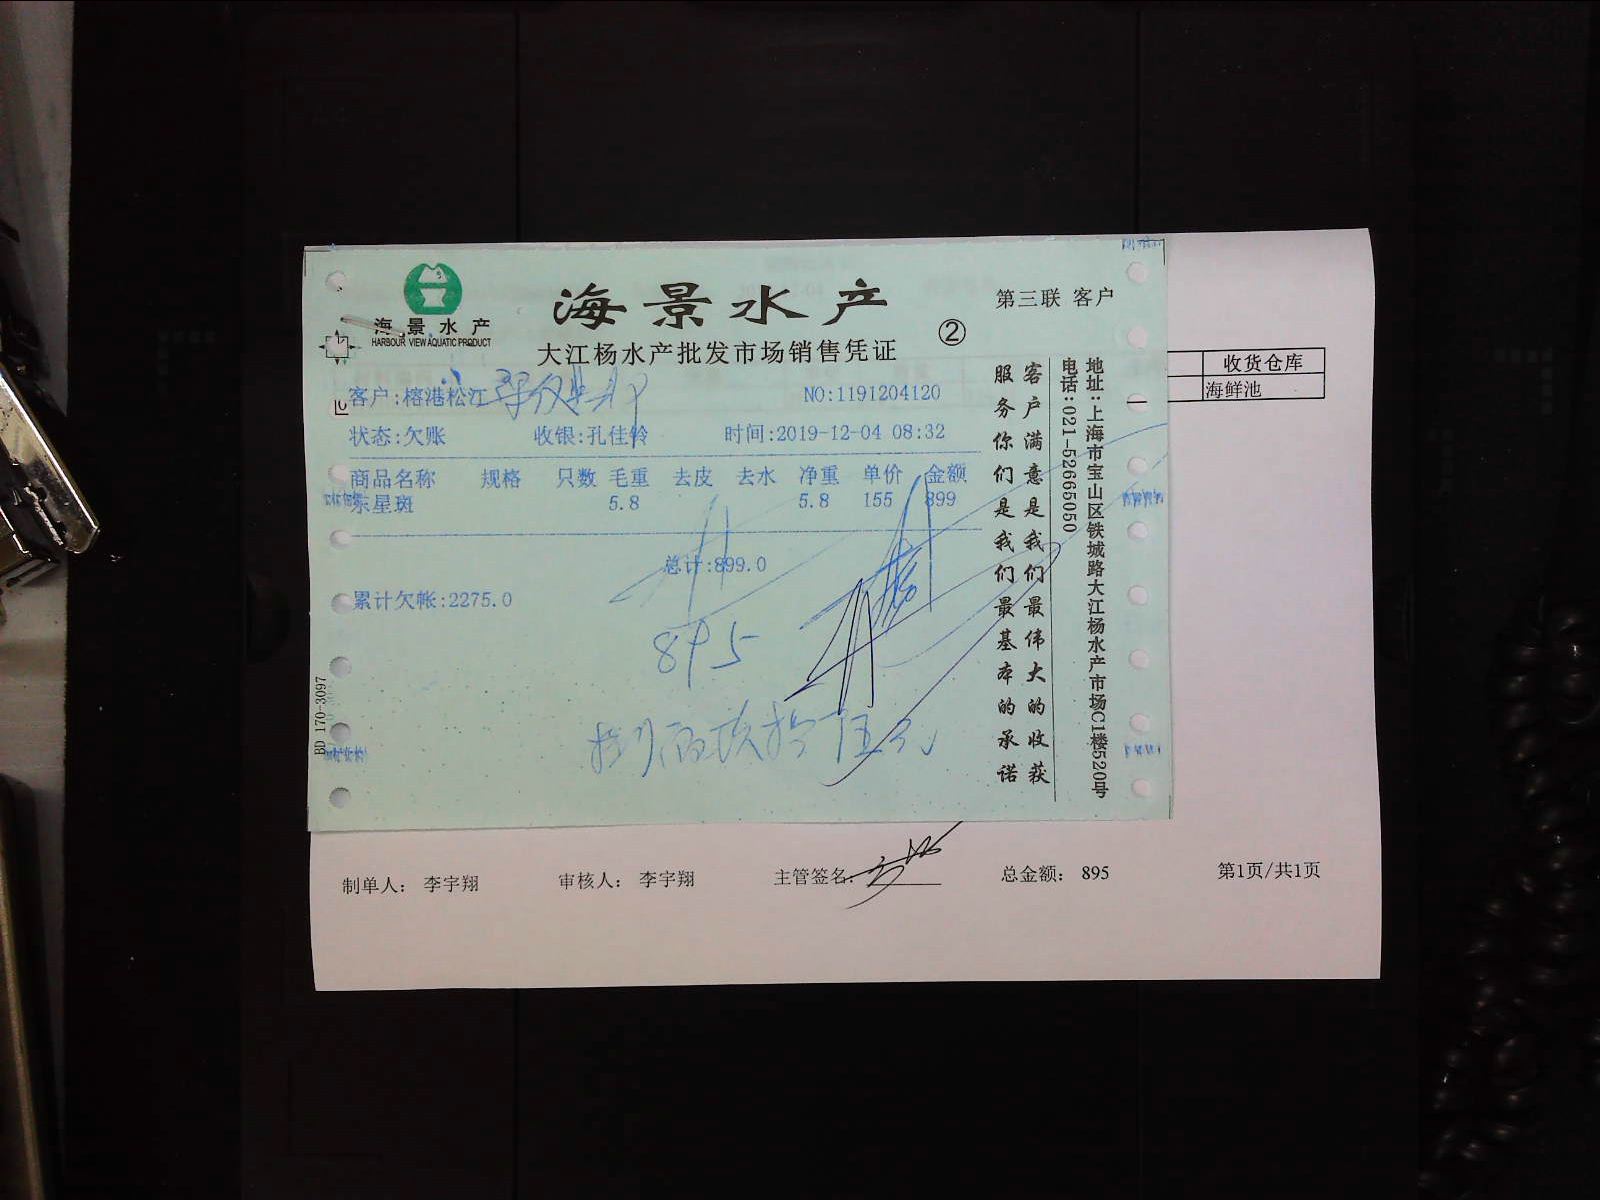 海景水产
HARBOUR VIEW AQUATIC PRODUCT
海景水产
大江杨水产批发市场销售凭证
②
第三联 客户
客户:榕港松江
NO:1191204120
状态:欠账 收银:孔佳铃 时间:2019-12-04 08:32
商品名称 规格 只数 毛重 去皮 去水 净重 单价 金额
东星斑 5.8 5.8 155 899
总计:899.0
累计欠帐:2275.0
895
捌佰玖拾伍元
客户满意是我们最伟大的收获
服务你们是我们最基本的承诺
地址:上海市宝山区铁城路大江杨水产市场C1楼520号
电话:021-52665050
BD 170-3097
收货仓库
海鲜池
制单人: 李宇翔 审核人: 李宇翔 主管签名: 总金额: 895 第1页/共1页